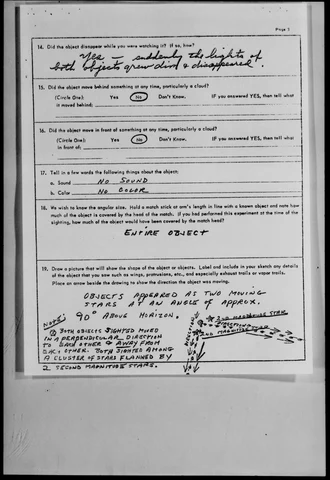 Page 3
14. Did the object disappear while you were watching it? If so, how?
Yes — suddenly the lights of
both objects grew dim & disappeared.
15. Did the object move behind something at any time, particularly a cloud?
(Circle One): Yes No Don't Know. IF you answered YES, then tell what
it moved behind:
16. Did the object move in front of something at any time, particularly a cloud?
(Circle One): Yes No Don't Know. IF you answered YES, then tell what
in front of:
17. Tell in a few words the following things about the object:
a. Sound NO SOUND
b. Color NO COLOR
18. We wish to know the angular size. Hold a match stick at arm's length in line with a known object and note how
much of the object is covered by the head of the match. If you had performed this experiment at the time of the
sighting, how much of the object would have been covered by the match head?
ENTIRE OBJECT
19. Draw a picture that will show the shape of the object or objects. Label and include in your sketch any details
of the object that you saw such as wings, protrusions, etc., and especially exhaust trails or vapor trails.
Place an arrow beside the drawing to show the direction the object was moving.
OBJECTS APPEARED AS TWO MOVING
STARS AT AN ANGLE OF APPROX.
90° ABOVE HORIZON.
NOTE:
BOTH OBJECTS SIGHTED MOVED
IN A PERPENDICULAR DIRECTION
TO EACH OTHER & AWAY FROM
EACH OTHER. BOTH SIGHTED AMONG
A CLUSTER OF STARS FLANKED BY
2 SECOND MAGNITUDE STARS.
2ND MAGNITUDE STAR
DIRECTION
2ND MAGNITUDE STAR